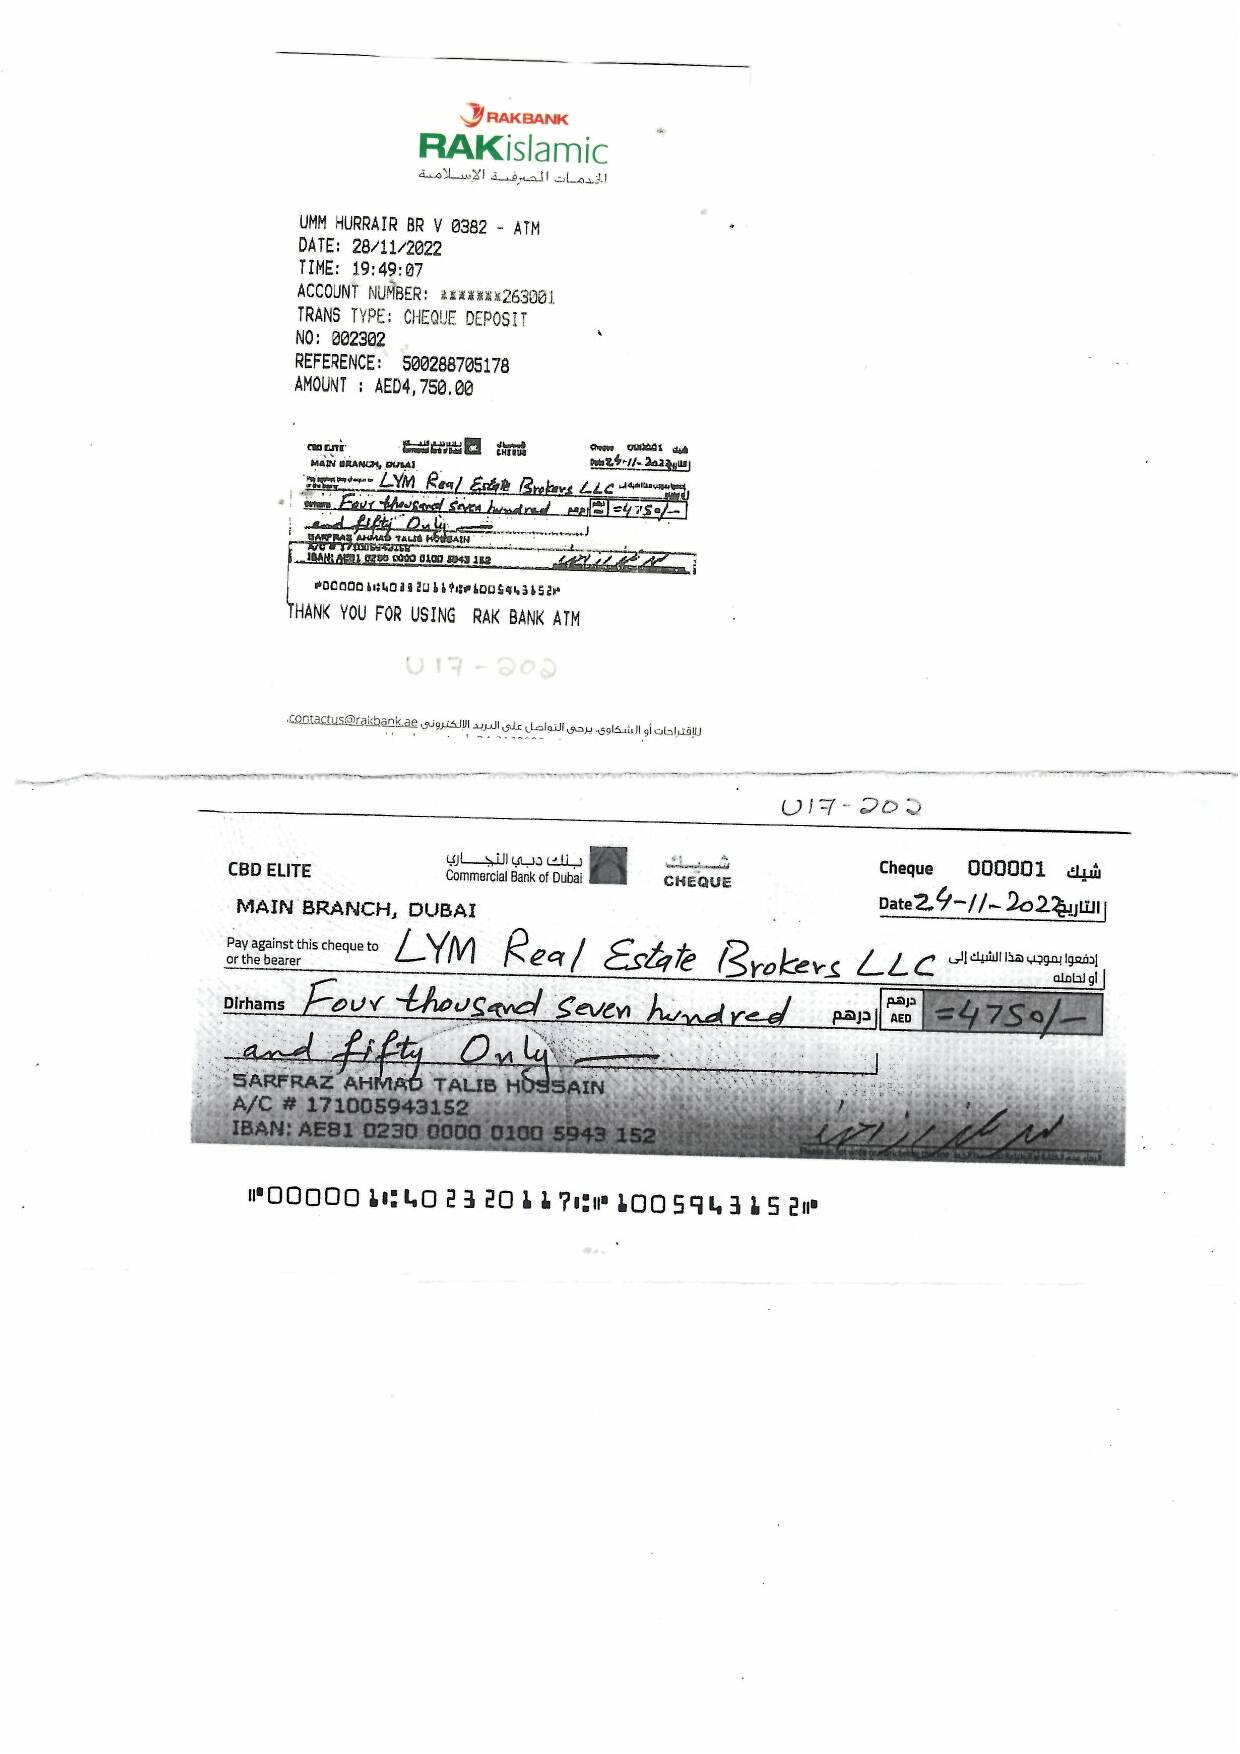 RAKBANK
RAKislamic
الخدمات المصرفية الإسلامية
UMM HURRAIR BR V 0382 - ATM
DATE: 28/11/2022
TIME: 19:49:07
ACCOUNT NUMBER: *******263001
TRANS TYPE: CHEQUE DEPOSIT
NO: 002302
REFERENCE: 500288705178
AMOUNT : AED4,750.00
CBD ELITE
Cheque 000001 شيك
MAIN BRANCH, DUBAI
Date 24-11-2022 التاريخ
LYM Real Estate Brokers LLC
Four thousand seven hundred =4750/-
and fifty Only
SARFRAZ AHMAD TALIB HUSSAIN
A/C # 171005943152
IBAN: AE81 0230 0000 0100 5943 152
⑈000001⑆402320117⑆⑈1005943152⑈
THANK YOU FOR USING RAK BANK ATM
U17-202
للإقتراحات أو الشكاوى، يرجى التواصل على البريد الإلكتروني contactus@rakbank.ae.
U17-202
CBD ELITE
بنك دبي التجاري
Commercial Bank of Dubai
شيك
CHEQUE
Cheque 000001 شيك
MAIN BRANCH, DUBAI
Date 24-11-2022 التاريخ
Pay against this cheque to
or the bearer
LYM Real Estate Brokers LLC
إدفعوا بموجب هذا الشيك إلى
أو لحامله
Dirhams Four thousand seven hundred درهم
درهم
AED
=4750/-
and fifty Only
SARFRAZ AHMAD TALIB HUSSAIN
A/C # 171005943152
IBAN: AE81 0230 0000 0100 5943 152
⑈000001⑆402320117⑆⑈1005943152⑈